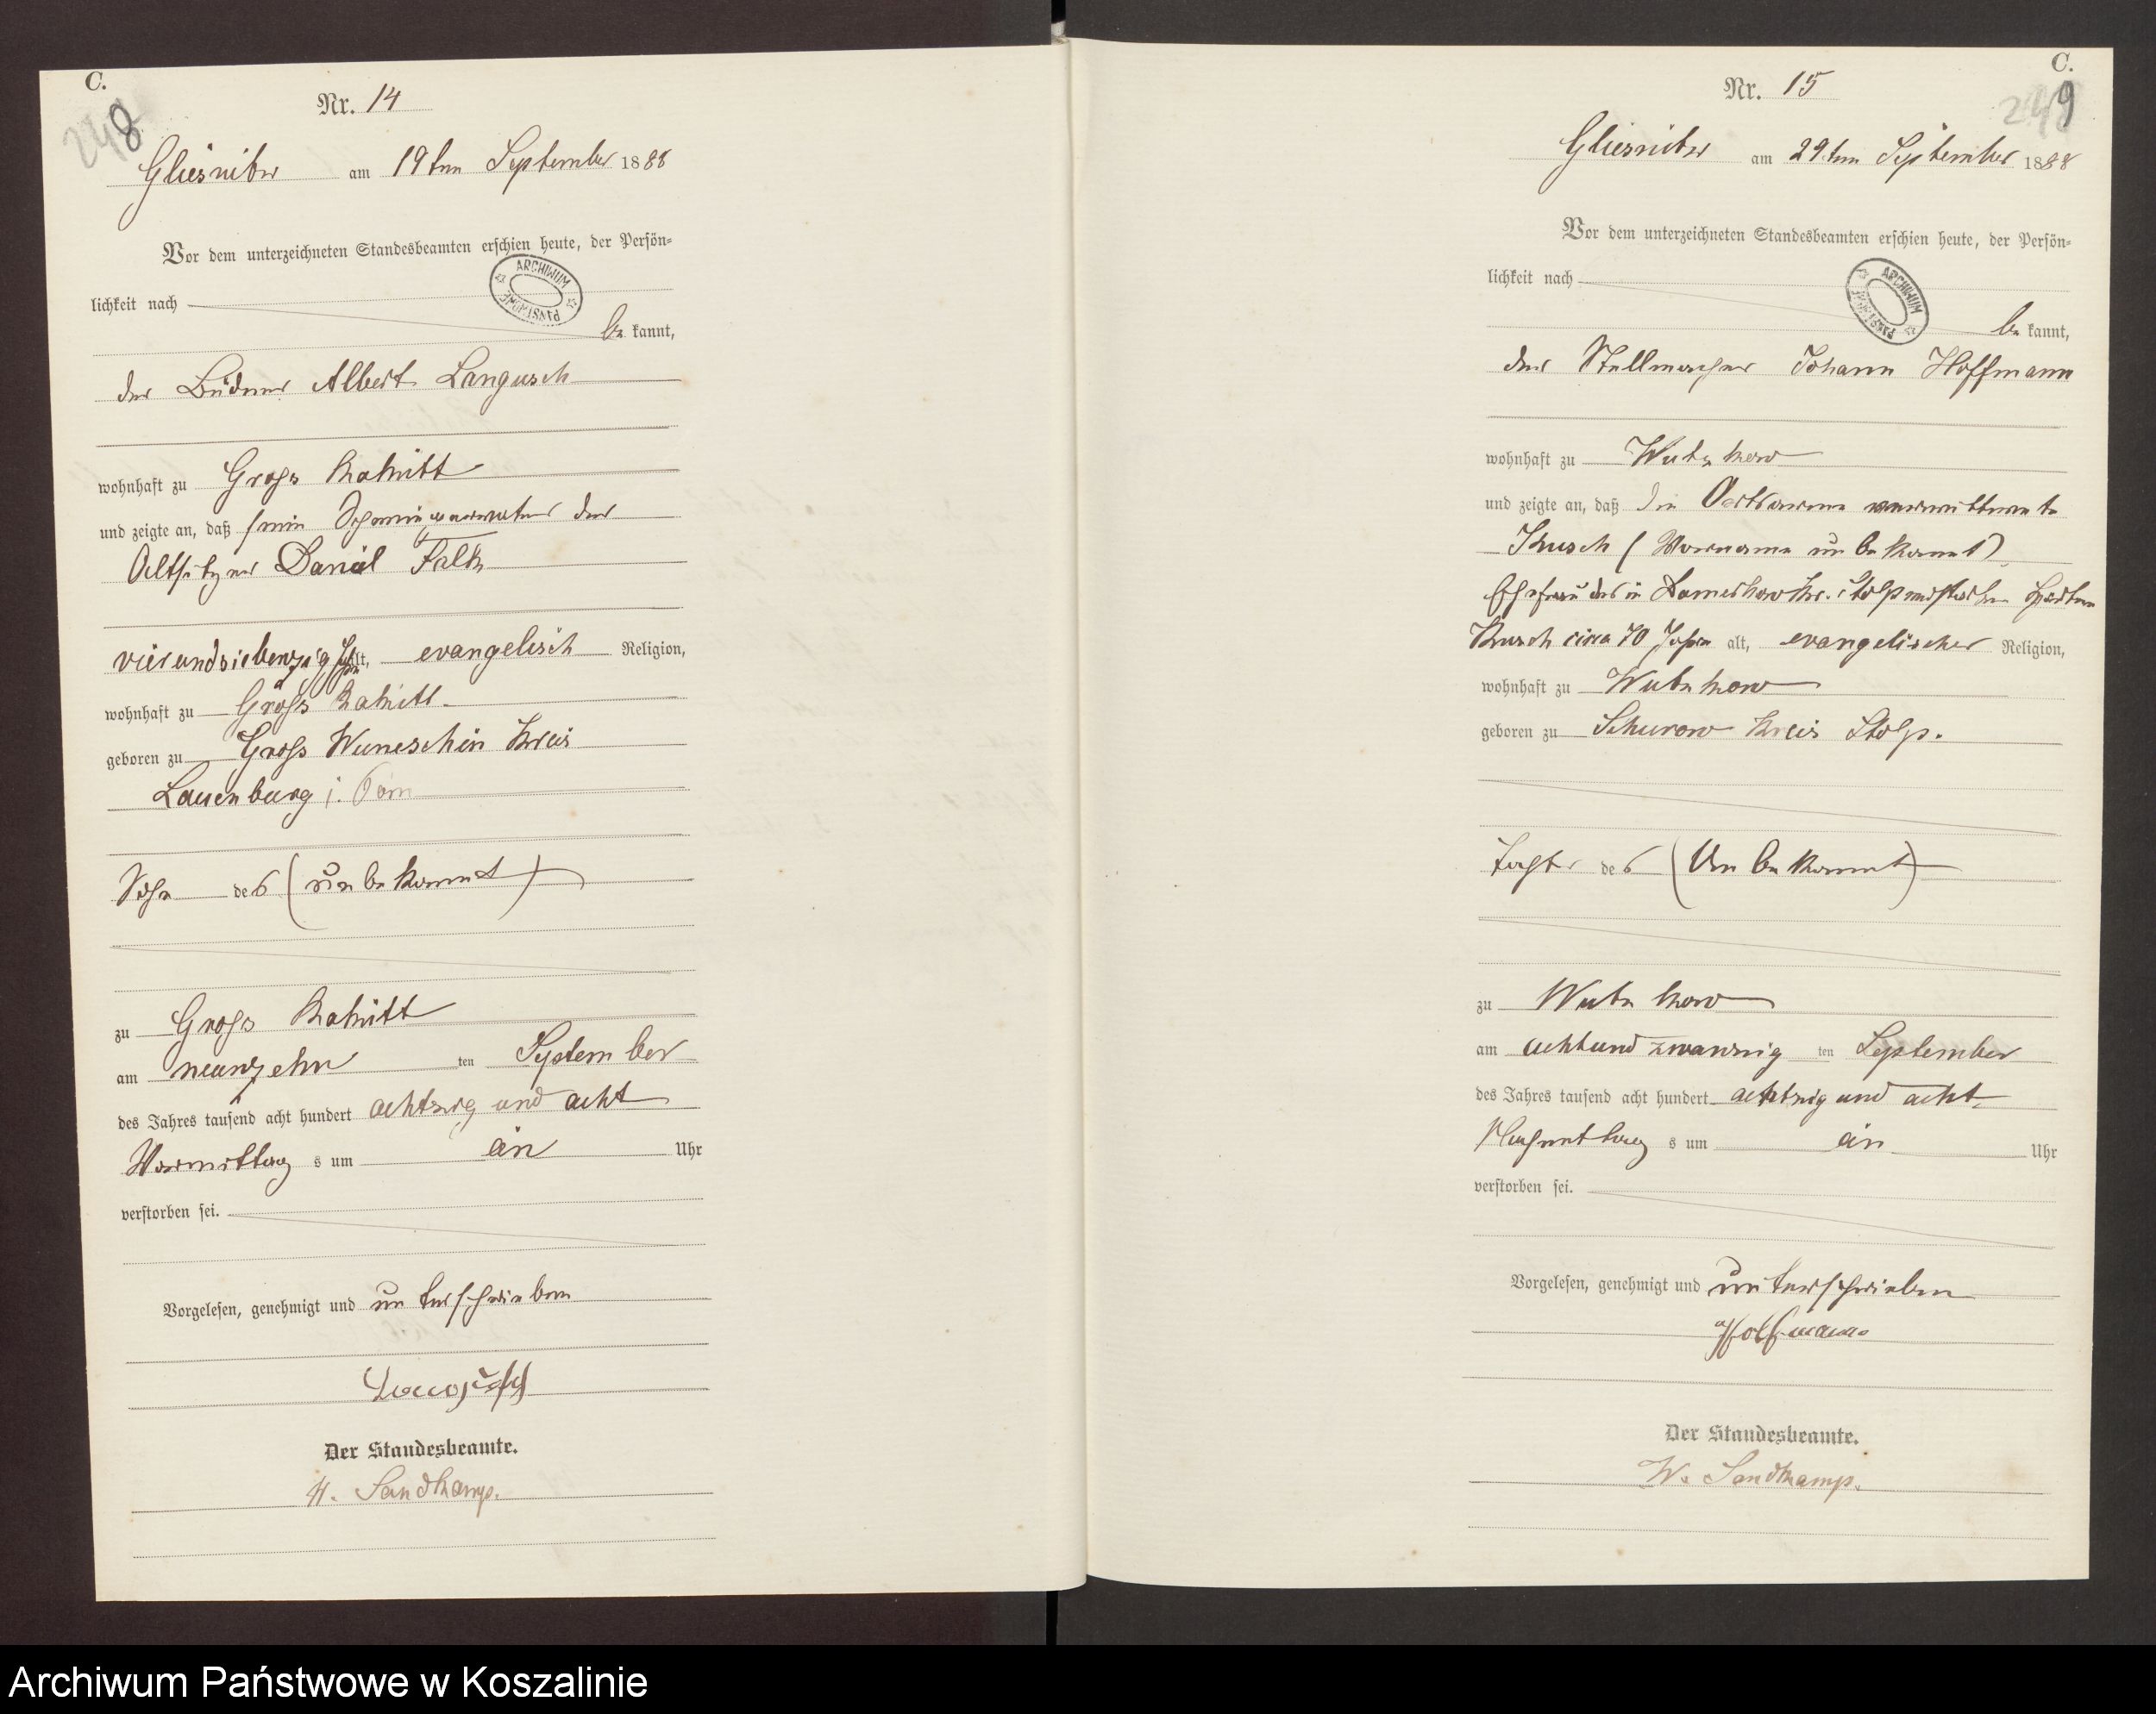 C.
248
Nr. 14
Gliesnitz am 19ten September 1888
Vor dem unterzeichneten Standesbeamten erschien heute, der Persön-
lichkeit nach
ARCHIWUM PAŃSTWOWE
be kannt,
der Büdner Albert Langusch
wohnhaft zu Gross Rakitt
und zeigte an, daß sein Schwiegervater der
Altsitzer Daniel Falk
vierundsiebenzig Jahre alt, evangelisch Religion,
wohnhaft zu Gross Rakitt
geboren zu Gross Wuneschin Kreis
Lauenburg i. Pom
Sohn des (unbekannt)
zu Gross Rakitt
am neunzehn ten September
des Jahres tausend acht hundert achtzig und acht
Vormittag s um ein Uhr
verstorben sei.
Vorgelesen, genehmigt und unterschrieben
Langusch
Der Standesbeamte.
W. Sandkamp.
C.
249
Nr. 15
Gliesnitz am 29ten September 1888
Vor dem unterzeichneten Standesbeamten erschien heute, der Persön-
lichkeit nach
ARCHIWUM PAŃSTWOWE
be kannt,
der Stellmacher Johann Hoffmann
wohnhaft zu Wutzkow
und zeigte an, daß die Ortsarme verwittwete
Kusch (Vorname unbekannt)
Ehefrau des in Damerkow Kr. Stolp verstorbenen
Kusch circa 70 Jahre alt, evangelischer Religion,
wohnhaft zu Wutzkow
geboren zu Schurow Kreis Stolp.
Tochter des (Unbekannt)
zu Wutzkow
am achtundzwanzig ten September
des Jahres tausend acht hundert achtzig und acht
Nachmittag s um ein Uhr
verstorben sei.
Vorgelesen, genehmigt und unterschrieben
Hoffmann
Der Standesbeamte.
W. Sandkamp.
Archiwum Państwowe w Koszalinie